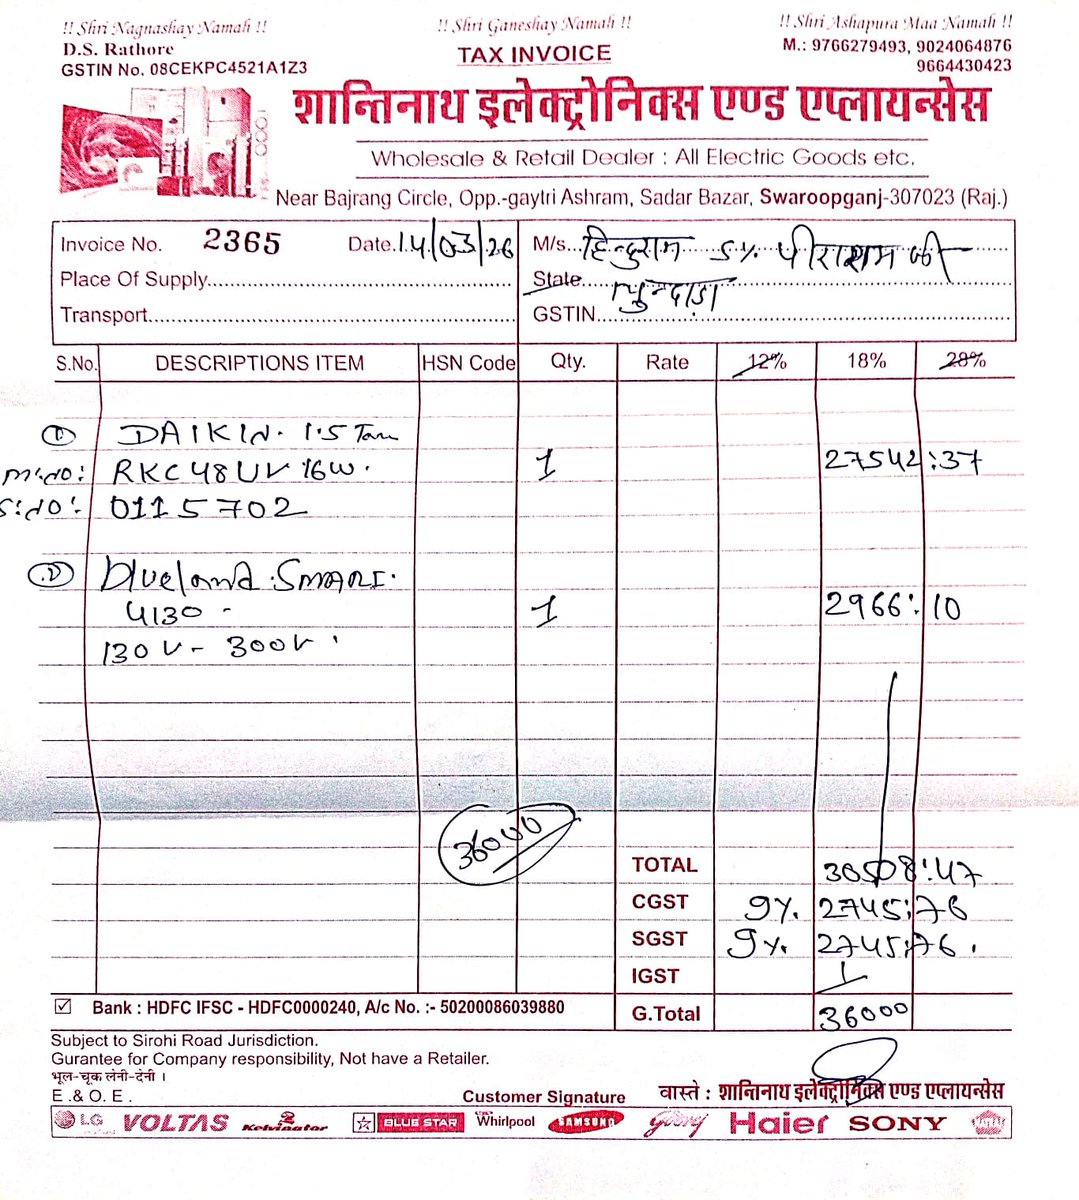 !! Shri Nagnashay Namah !! !! Shri Ganeshay Namah !! !! Shri Ashapura Maa Namah !!
D.S. Rathore TAX INVOICE M.: 9766279493, 9024064876
GSTIN No. 08CEKPC4521A1Z3 9664430423
शान्तिनाथ इलेक्ट्रोनिक्स एण्ड एप्लायन्सेस
Wholesale & Retail Dealer : All Electric Goods etc.
Near Bajrang Circle, Opp.-gaytri Ashram, Sadar Bazar, Swaroopganj-307023 (Raj.)
Invoice No. 2365 Date. 14/03/26 M/s... हिन्दुराम S/. पीराराम जी
Place Of Supply State
Transport GSTIN
S.No. DESCRIPTIONS ITEM HSN Code Qty. Rate 12% 18% 28%
① DAIKIN. 1.5 Ton
M.NO: RKC48UV16W. 1 27542:37
S:NO: 0115702
② Blueland SMART.
4130 - 1 2966:10
130V - 300V
36000
TOTAL 30508:47
CGST 9%. 2745:76
SGST 9%. 2745:76.
IGST
Bank : HDFC IFSC - HDFC0000240, A/c No. :- 50200086039880 G.Total 36000
Subject to Sirohi Road Jurisdiction.
Gurantee for Company responsibility, Not have a Retailer.
भूल-चूक लेनी-देनी ।
E .& O. E . Customer Signature वास्ते : शान्तिनाथ इलेक्ट्रोनिक्स एण्ड एप्लायन्सेस
LG VOLTAS Kelvinator BLUE STAR Whirlpool SAMSUNG Godrej Haier SONY